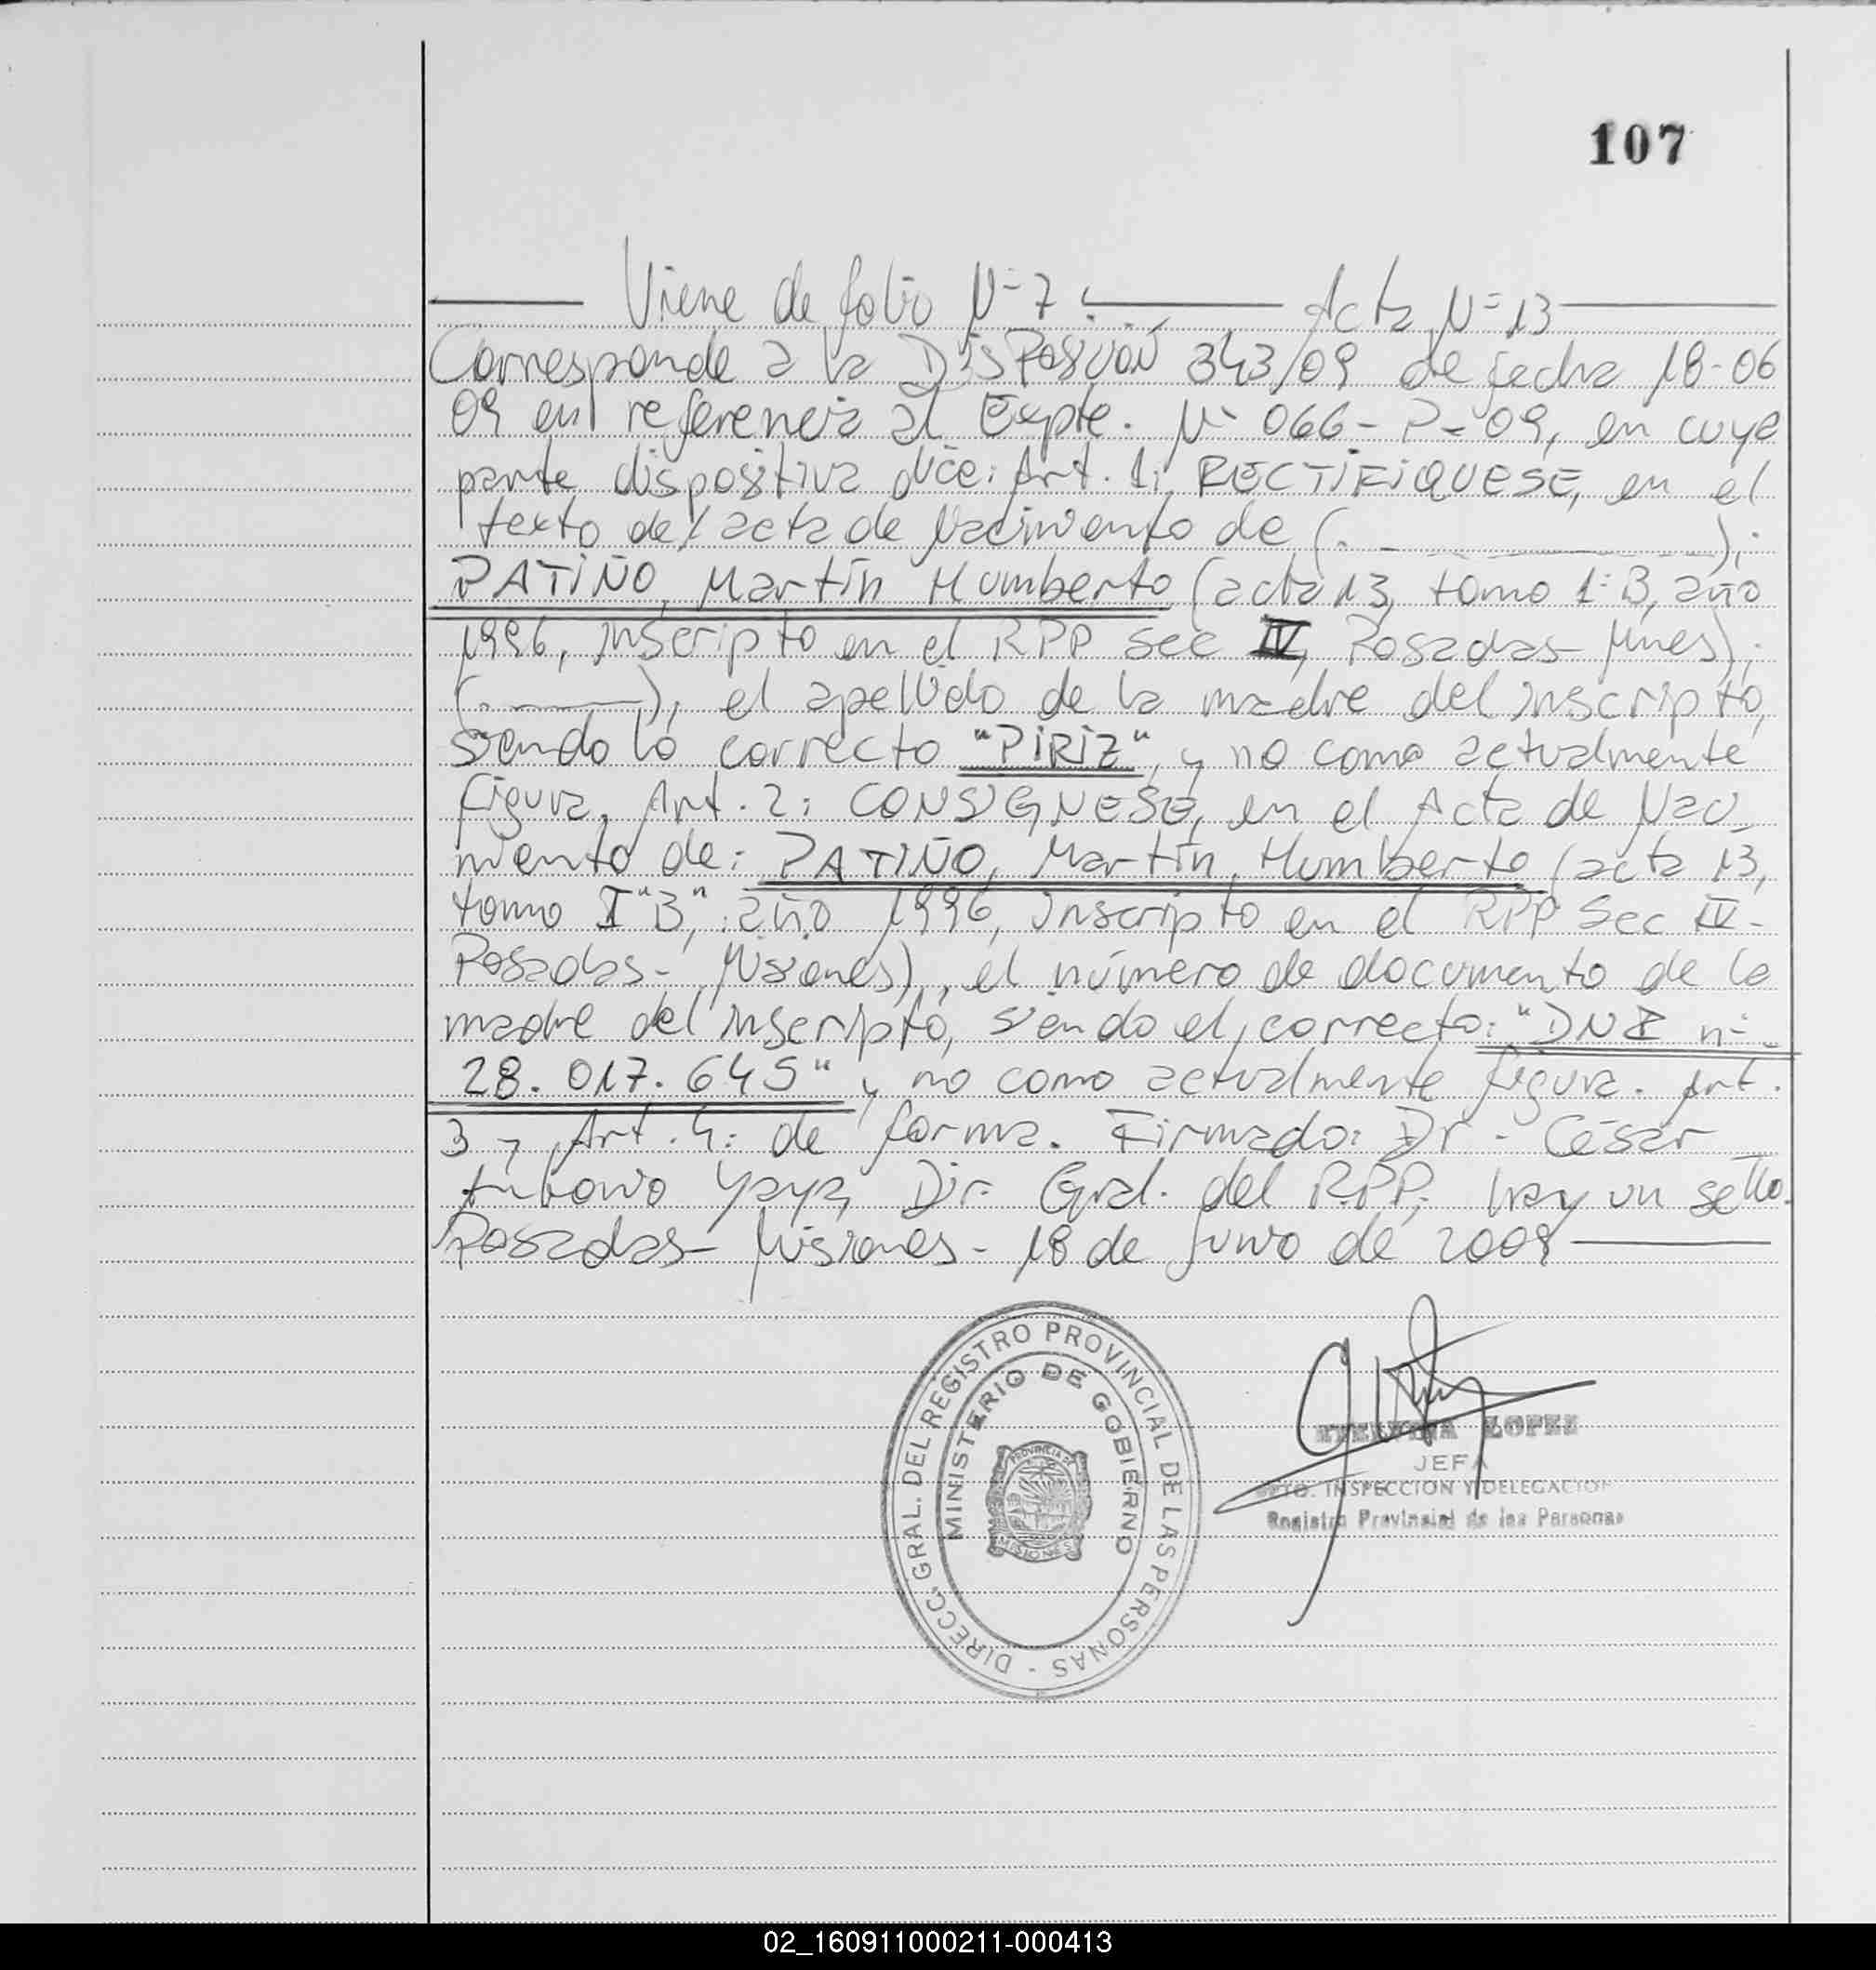 107
Viene de folio Nº 7: Acta Nº 13
Corresponde a la DISPOSICIÓN 343/09 de fecha 18-06
09 en referencia al Expte. Nº 066-P-09, en cuya
parte dispositiva dice: Art. 1: RECTIFIQUESE, en el
texto del acta de Nacimiento de (. ______);
PATIÑO, Martín Humberto (acta 13, tomo 1º B, año
1996, inscripto en el RPP Sec IV, Posadas-Mnes);
(.______), el apellido de la madre del inscripto,
siendo lo correcto "PIRIZ", y no como actualmente
figura. Art. 2: CONSIGNESE, en el Acta de Naci_
miento de: PATIÑO, Martín Humberto (acta 13,
tomo I "B", año 1996, Inscripto en el RPP Sec IV-
Posadas- Misiones), el número de documento de la
madre del inscripto, siendo el correcto: "DNI nº
28.017.645" y no como actualmente figura. Art.
3 y Art. 4: de forma. Firmado: Dr. César
Antonio Yaya, Dir. Gral. del RPP, hay un sello.
Posadas- Misiones- 18 de Junio de 2009
DIRECC. GRAL. DEL REGISTRO PROVINCIAL DE LAS PERSONAS -
MINISTERIO DE GOBIERNO
PROVINCIA DE
MISIONES
LOPEZ
JEFA
DPTO. INSPECCION Y DELEGACION
Registro Provincial de las Personas
02_160911000211-000413